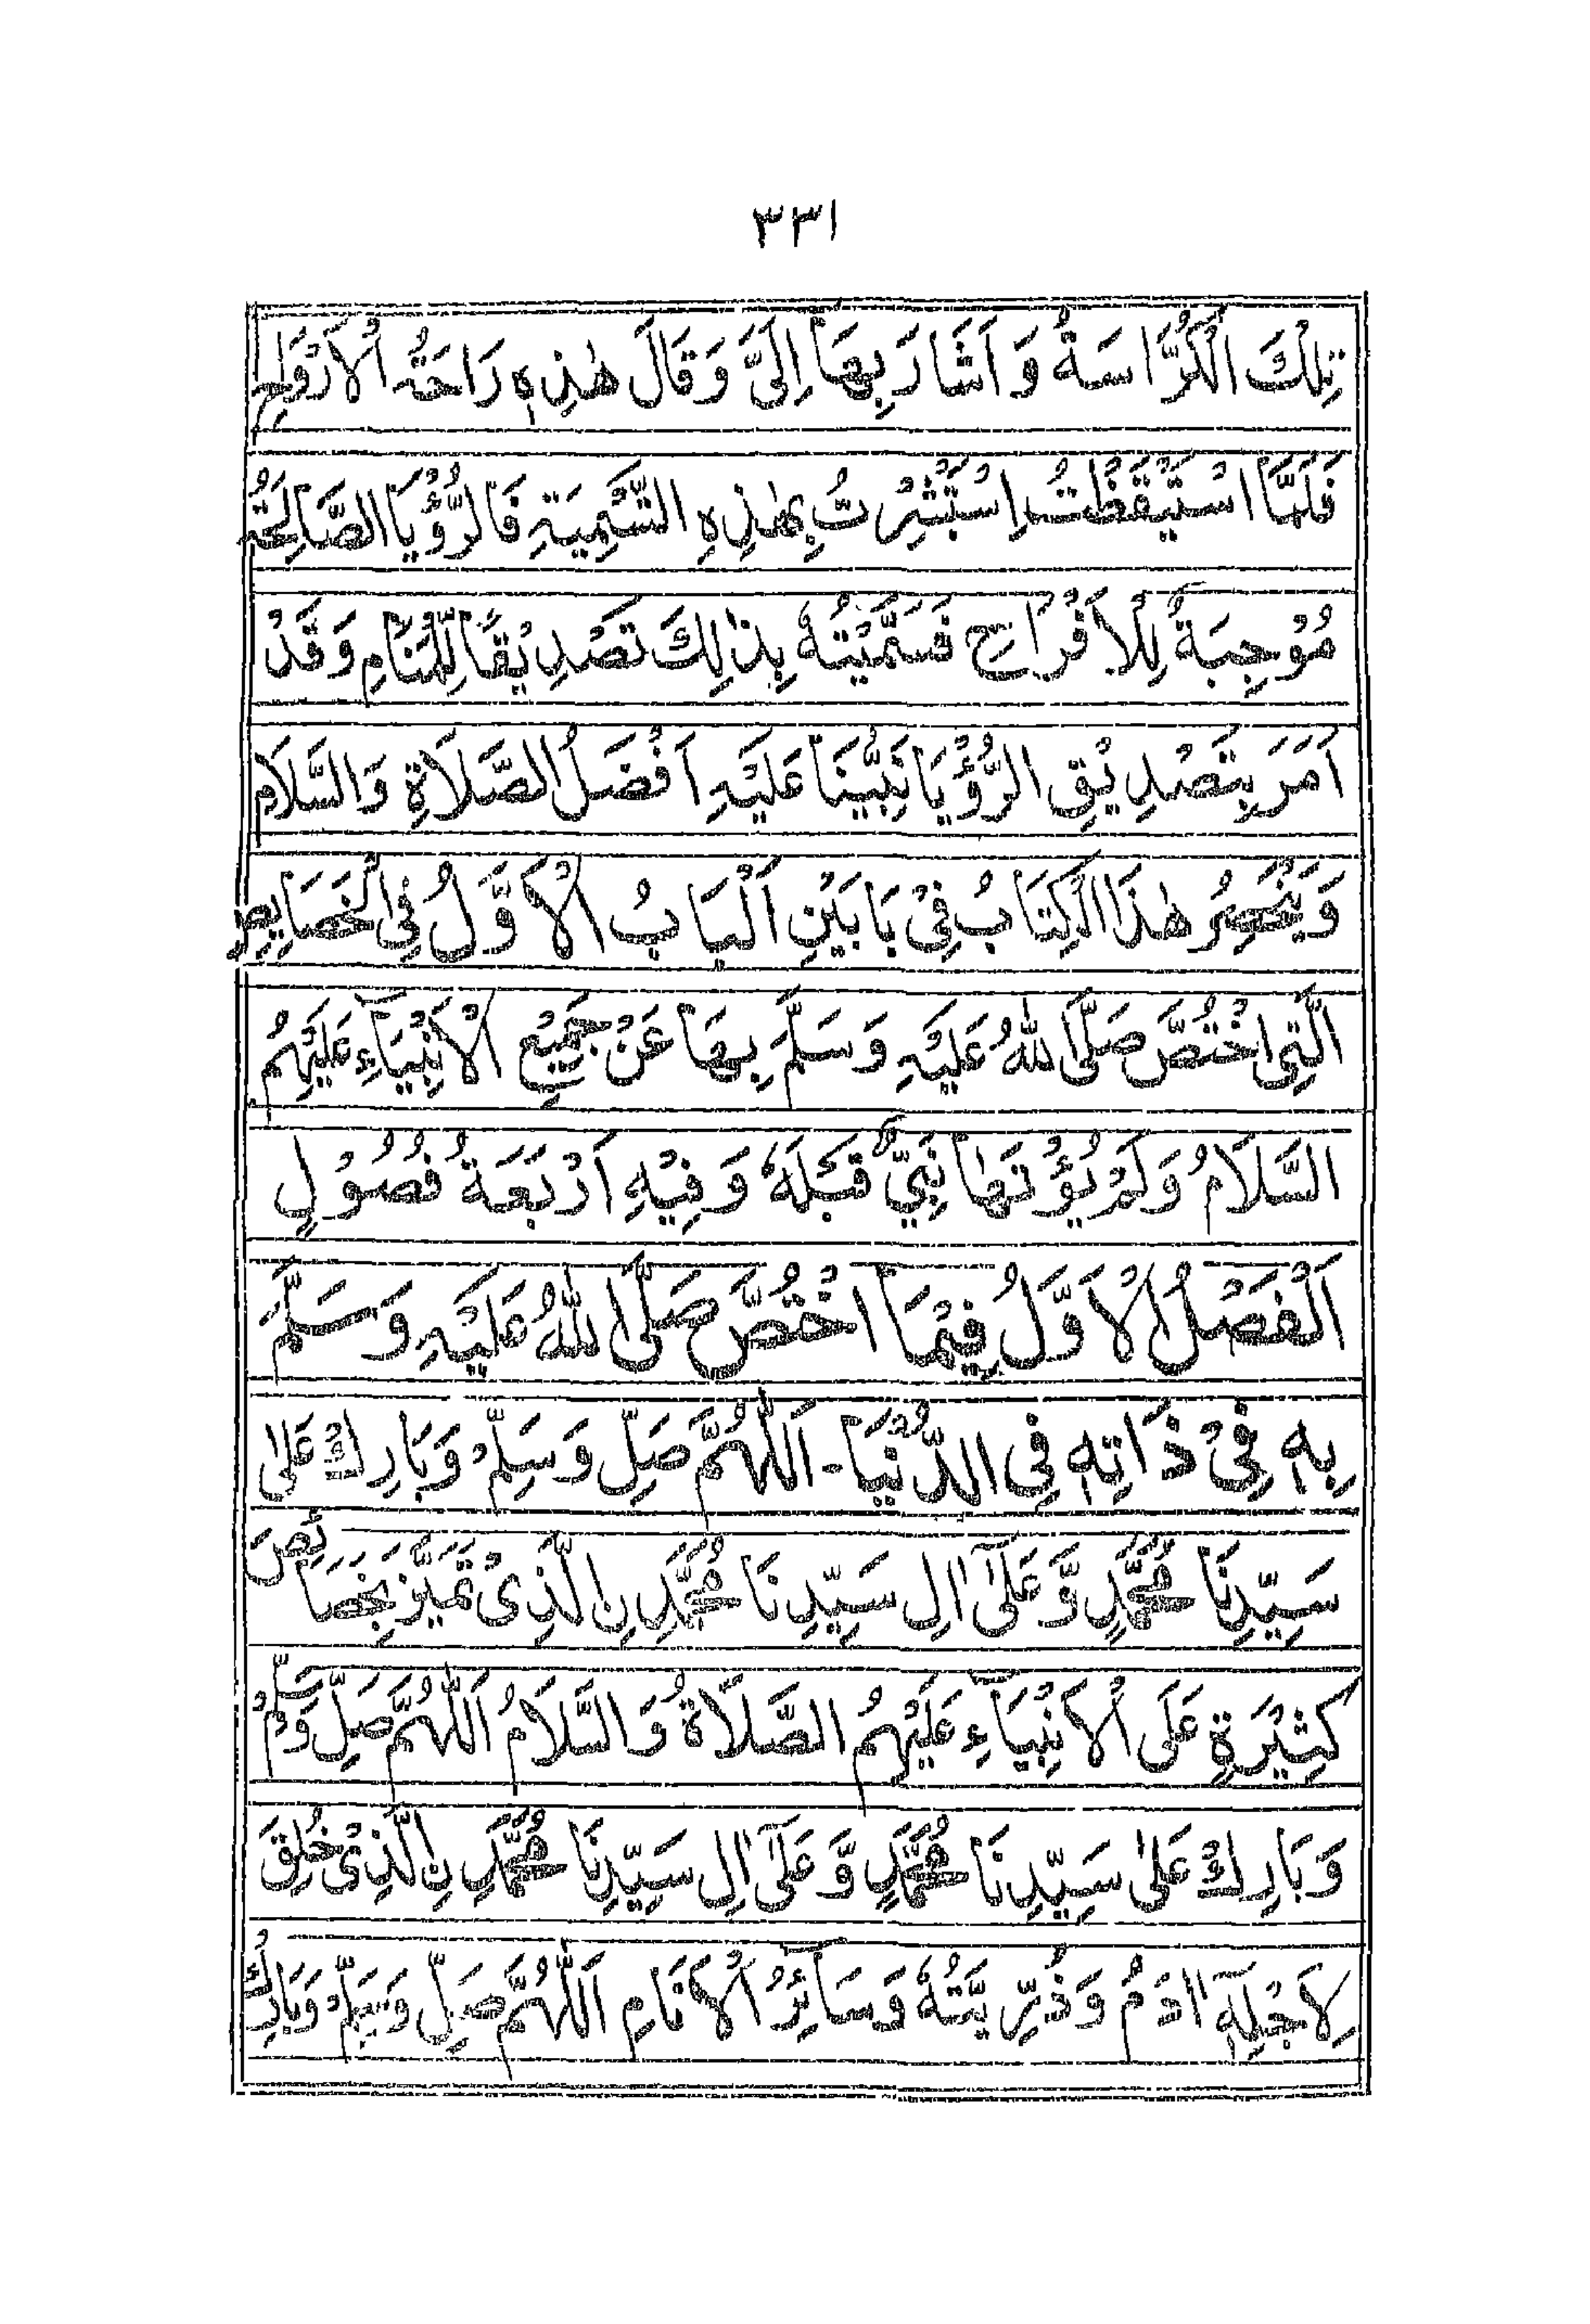 ٣٣١
تِلْكَ الْكُرَّاسَةُ وَاَشَارَ بِهَا اِلَىَّ وَقَالَ هٰذِهٖ رَاحَةُ الْاَرْوَاحِ
فَلَمَّا اسْتَيْقَظْتُ اِسْتَبْشِرْتُ بِهٰذِهِ التَّسْمِيَةِ فَالرُّؤْيَا الصَّالِحَةُ
مُوْجِبَةٌ لِلْاَفْرَاحِ فَسَمَّيْتُهٗ بِذٰلِكَ تَصْدِيْقًا لِّلْمَنَامِ وَقَدْ
اَمَرَ بِتَصْدِيْقِ الرُّؤْيَا نَبِيُّنَا عَلَيْهِ اَفْضَلُ الصَّلَاةِ وَالسَّلَامِ
وَيَنْحَصِرُ هٰذَا الْكِتَابُ فِىْ بَابَيْنِ اَلْبَابُ الْاَوَّلُ فِى الْخَصَايِصِ
الَّتِى اخْتُصَّ صَلَّى اللهُ عَلَيْهِ وَسَلَّمَ بِهَا عَنْ جَمِيْعِ الْاَنْبِيَآءِ عَلَيْهِمُ
السَّلَامُ وَلَمْ يُؤْتَهَا نَبِىٌّ قَبْلَهٗ وَفِيْهِ اَرْبَعَةُ فُصُوْلٍ
اَلْفَصْلُ الْاَوَّلُ فِيْمَا اخْتُصَّ صَلَّى اللهُ عَلَيْهِ وَسَلَّمَ
بِهٖ فِىْ ذَاتِهٖ فِى الدُّنْيَا - اَللّٰهُمَّ صَلِّ وَسَلِّمْ وَبَارِكْ عَلٰى
سَيِّدِنَا مُحَمَّدٍ وَّعَلٰىٓ اٰلِ سَيِّدِنَا مُحَمَّدِنِ الَّذِىْ تَمَيَّزَ بِخَصَائِصَ
كَثِيْرَةٍ عَلَى الْاَنْبِيَآءِ عَلَيْهِمُ الصَّلَاةُ وَالسَّلَامُ اَللّٰهُمَّ صَلِّ وَسَلِّمْ
وَبَارِكْ عَلٰى سَيِّدِنَا مُحَمَّدٍ وَّعَلٰىٓ اٰلِ سَيِّدِنَا مُحَمَّدِنِ الَّذِىْ خُلِقَ
لِاَجْلِهٖٓ اٰدَمُ وَذُرِّيَّتُهٗ وَسَآئِرُ الْاَنَامِ اَللّٰهُمَّ صَلِّ وَسَلِّمْ وَبَارِكْ